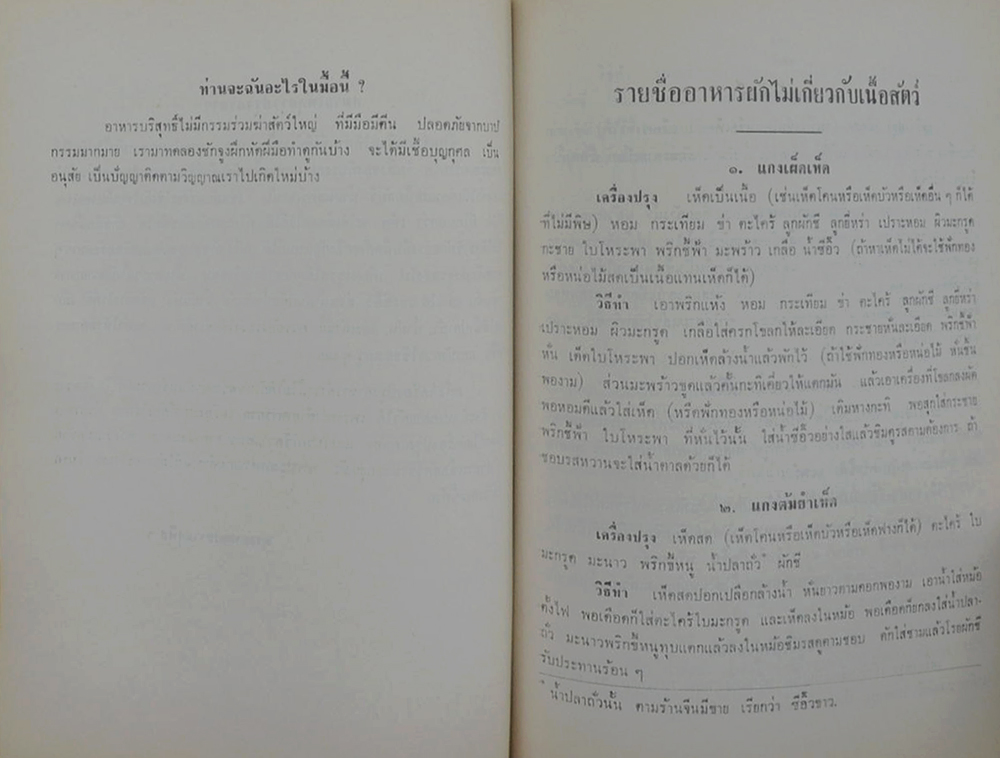 ท่านจะฉันอะไรในมื้อนี้ ?
อาหารบริสุทธิ์ไม่มีกรรมร่วมฆ่าสัตว์ใหญ่ ที่มีมือมีตีน ปลอดภัยจากบาป
กรรมมากมาย เรามาทดลองชักจูงฝึกหัดฝีมือทำดูกันบ้าง จะได้มีเชื้อบุญกุศล เป็น
อนุสัย เป็นปัญญาติดตามวิญญาณเราไปเกิดใหม่บ้าง
รายชื่ออาหารผักไม่เกี่ยวกับเนื้อสัตว์
๑. แกงเผ็ดเห็ด
เครื่องปรุง เห็ดเป็นเนื้อ (เช่นเห็ดโคนหรือเห็ดบัวหรือเห็ดอื่น ๆ ก็ได้
ที่ไม่มีพิษ) หอม กระเทียม ข่า ตะไคร้ ลูกผักชี ลูกยี่หร่า เปราะหอม ผิวมะกรูด
กะชาย ใบโหระพา พริกชี้ฟ้า มะพร้าว เกลือ น้ำซีอิ๊ว (ถ้าหาเห็ดไม่ได้จะใช้ฟักทอง
หรือหน่อไม้สดเป็นเนื้อแทนเห็ดก็ได้)
วิธีทำ เอาพริกแห้ง หอม กระเทียม ข่า ตะไคร้ ลูกผักชี ลูกยี่หร่า
เปราะหอม ผิวมะกรูด เกลือใส่ครกโขลกให้ละเอียด กระชายหั่นละเอียด พริกชี้ฟ้า
หั่น เด็ดใบโหระพา ปอกเห็ดล้างน้ำแล้วพักไว้ (ถ้าใช้ฟักทองหรือหน่อไม้ หั่นชิ้น
พองาม) ส่วนมะพร้าวขูดแล้วคั้นกะทิเคี่ยวให้แตกมัน แล้วเอาเครื่องที่โขลกลงผัด
พอหอมดีแล้วใส่เห็ด (หรือฟักทองหรือหน่อไม้) เติมหางกะทิ พอสุกใส่กระชาย
พริกชี้ฟ้า ใบโหระพา ที่หั่นไว้นั้น ใส่น้ำซีอิ๊วอย่างใสแล้วชิมดูรสตามต้องการ ถ้า
ชอบรสหวานจะใส่น้ำตาลด้วยก็ได้
๒. แกงต้มยำเห็ด
เครื่องปรุง เห็ดสด (เห็ดโคนหรือเห็ดบัวหรือเห็ดฟางก็ได้) ตะไคร้ ใบ
มะกรูด มะนาว พริกขี้หนู น้ำปลาถั่ว* ผักชี
วิธีทำ เห็ดสดปอกเปลือกล้างน้ำ หั่นยาวตามดอกพองาม เอาน้ำใส่หม้อ
ตั้งไฟ พอเดือดก็ใส่ตะไคร้ใบมะกรูด และเห็ดลงในหม้อ พอเดือดก็ยกลงใส่น้ำปลา-
ถั่ว มะนาวพริกขี้หนูทุบแตกแล้วลงในหม้อชิมรสดูตามชอบ ตักใส่ชามแล้วโรยผักชี
รับประทานร้อน ๆ
* น้ำปลาถั่วนั้น ตามร้านจีนมีขาย เรียกว่า ซีอิ๊วขาว.